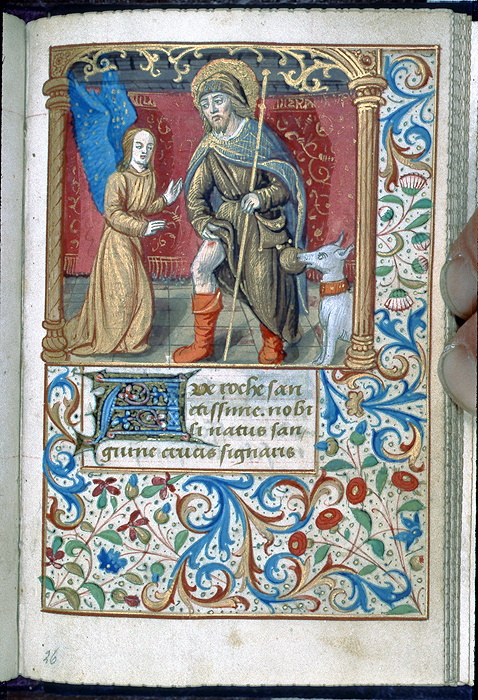 AVe roche san
ctissime. nobi
li natus san
guine crucis signaris
26